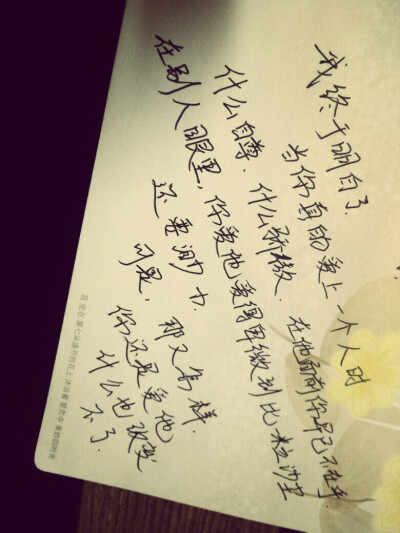 我终于明白了.
当你真的爱上一个人时
什么自尊. 什么骄傲. 在他面前你早已不在乎.
在别人眼里, 你爱他爱得卑微到比粒沙尘
还要渺小.
可是, 那又怎样.
你还是爱他
什么也改变
不了.